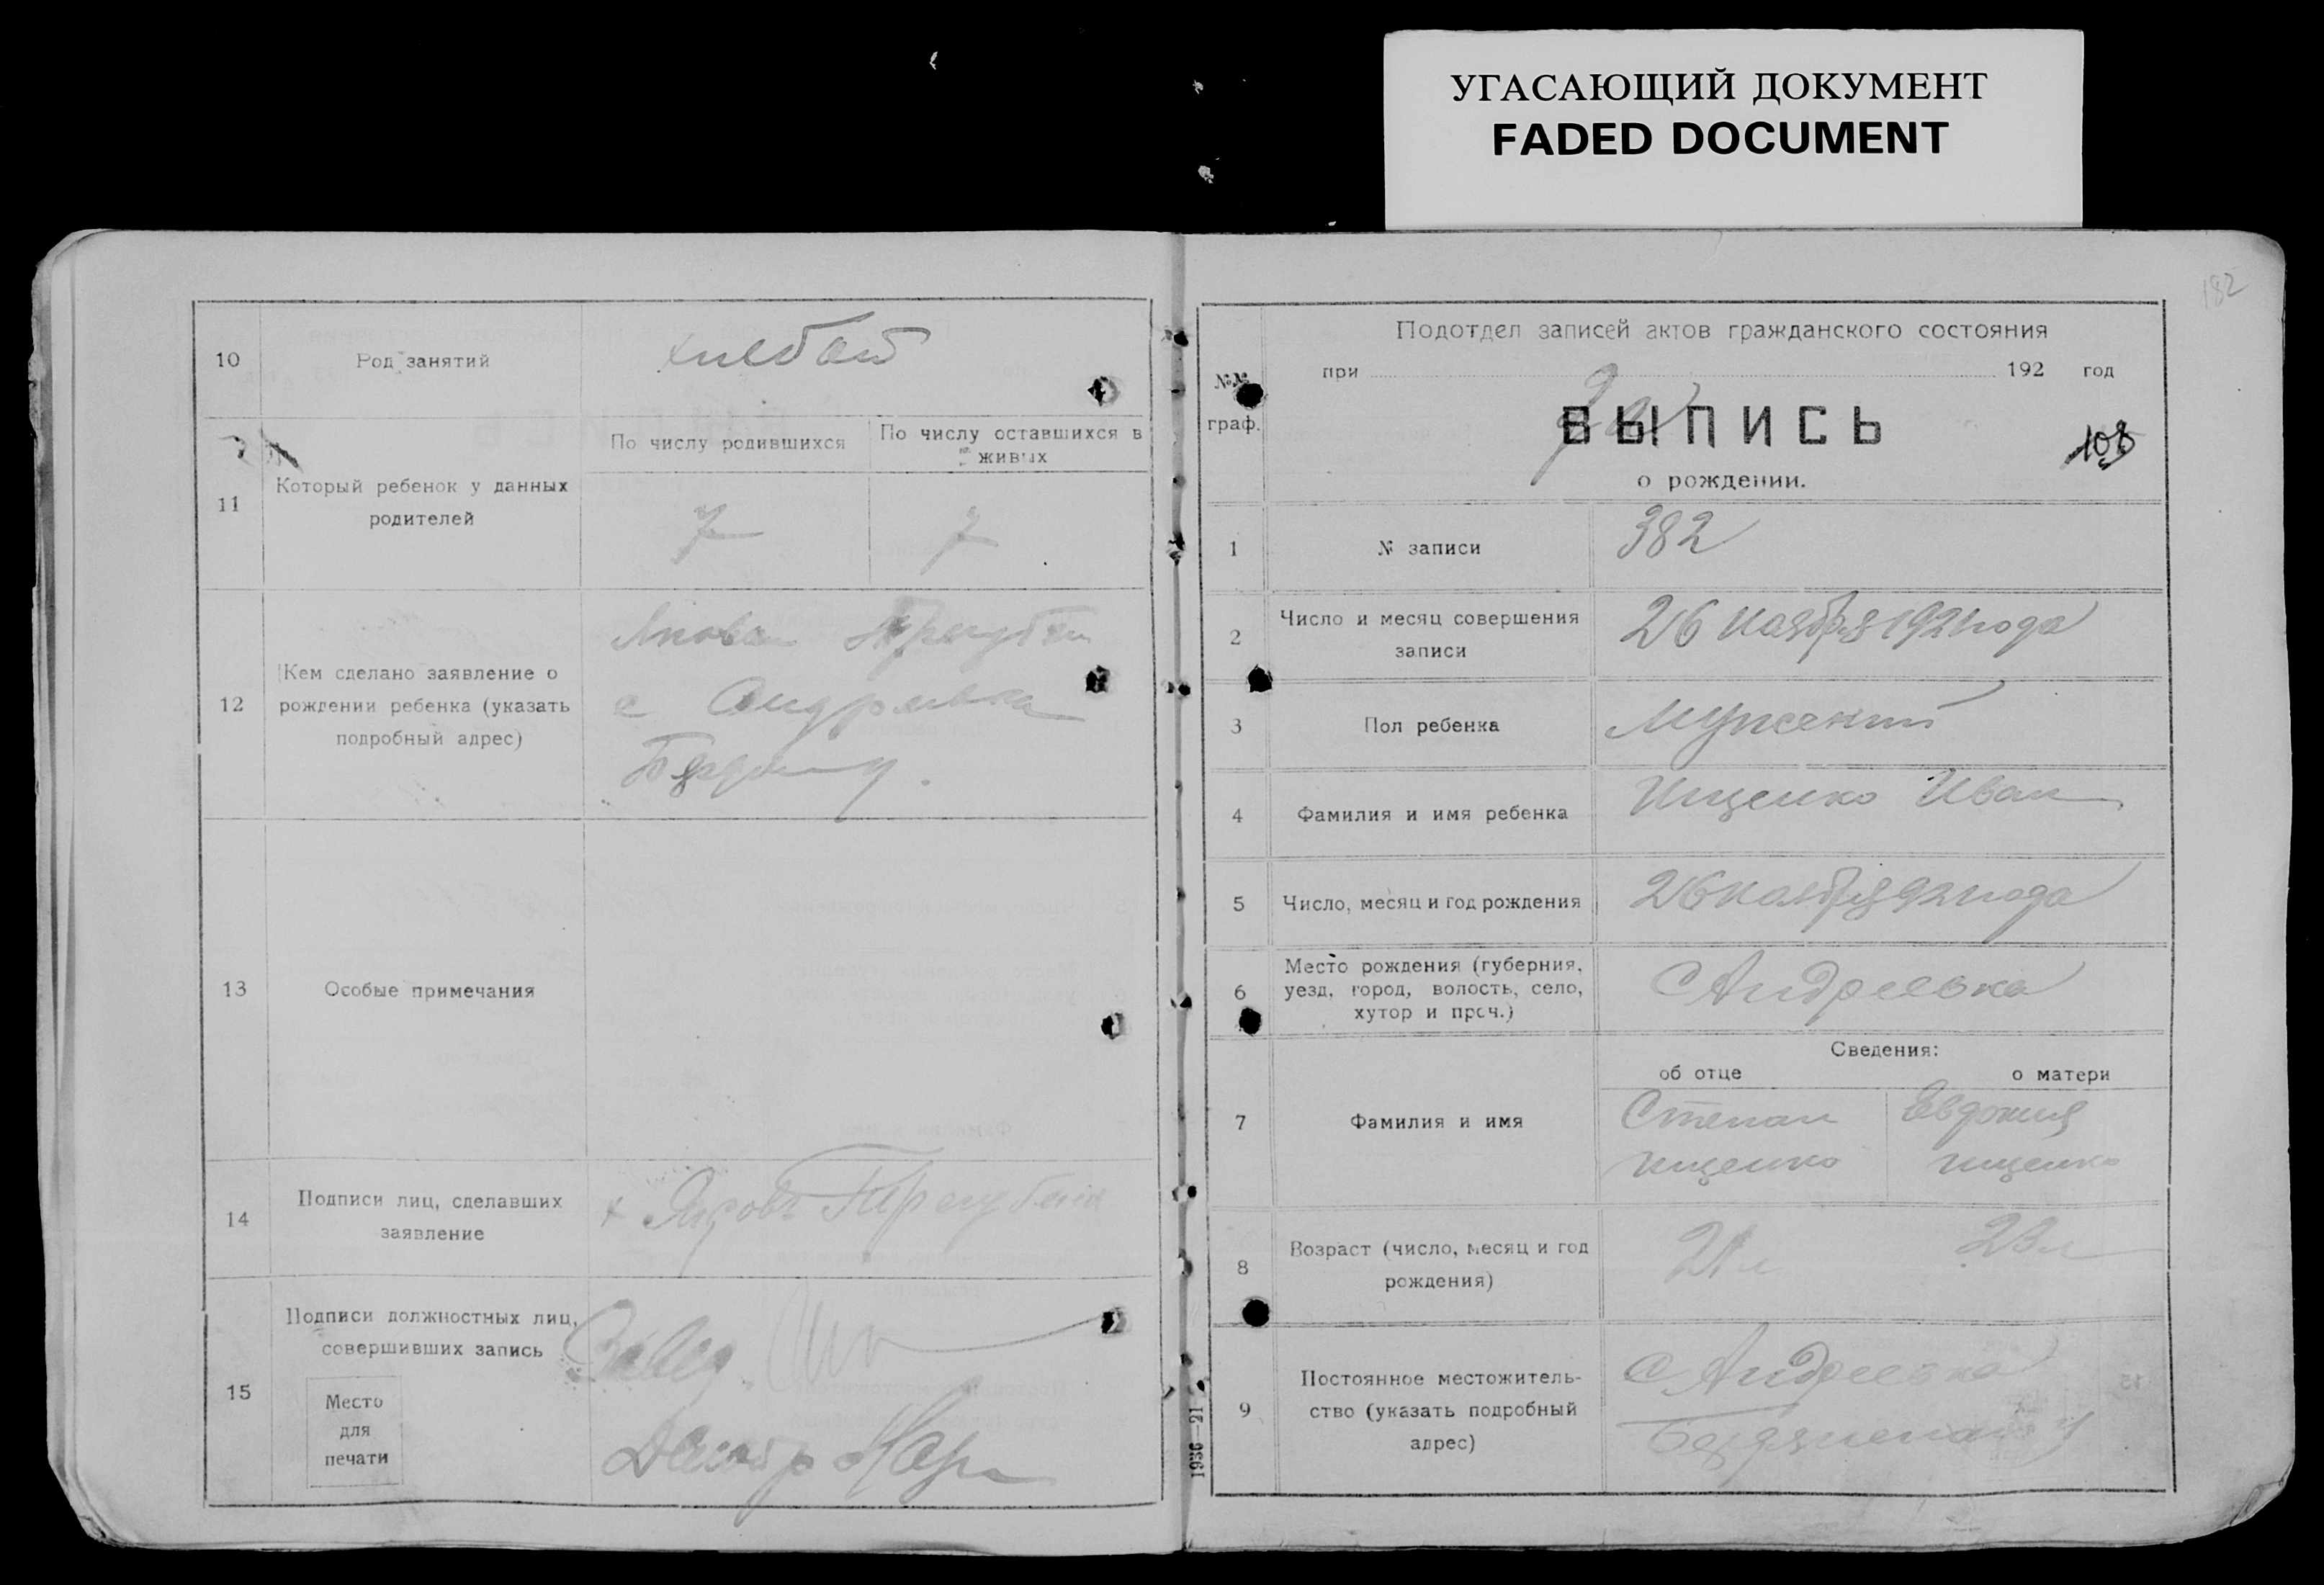 УГАСАЮЩИЙ ДОКУМЕНТ
FADED DOCUMENT
10
Род занятий
хлебоп
11
Который ребенок у данных
родителей
По числу родившихся
По числу оставшихся в
живых
7
7
12
Кем сделано заявление о
рождении ребенка (указать
подробный адрес)
с Андреевка
13
Особые примечания
14
Подписи лиц, сделавших
заявление
15
Подписи должностных лиц,
совершивших запись
Место
для
печати
Завед.
182
№№
граф.
Подотдел записей актов гражданского состояния
при 192 год
ВЫПИСЬ
о рождении.
108
1
№ записи
382
2
Число и месяц совершения
записи
26 ноября 1921 года
3
Пол ребенка
Мужский
4
Фамилия и имя ребенка
Ищенко Иван
5
Число, месяц и год рождения
26 ноября 921 года
6
Место рождения (губерния,
уезд, город, волость, село,
хутор и проч.)
С Андреевка
Сведения:
об отце
о матери
7
Фамилия и имя
Степан
Ищенко
Евдокия
Ищенко
8
Возраст (число, месяц и год
рождения)
21 л
23 л
9
Постоянное местожитель-
ство (указать подробный
адрес)
С Андреевка
1936—21